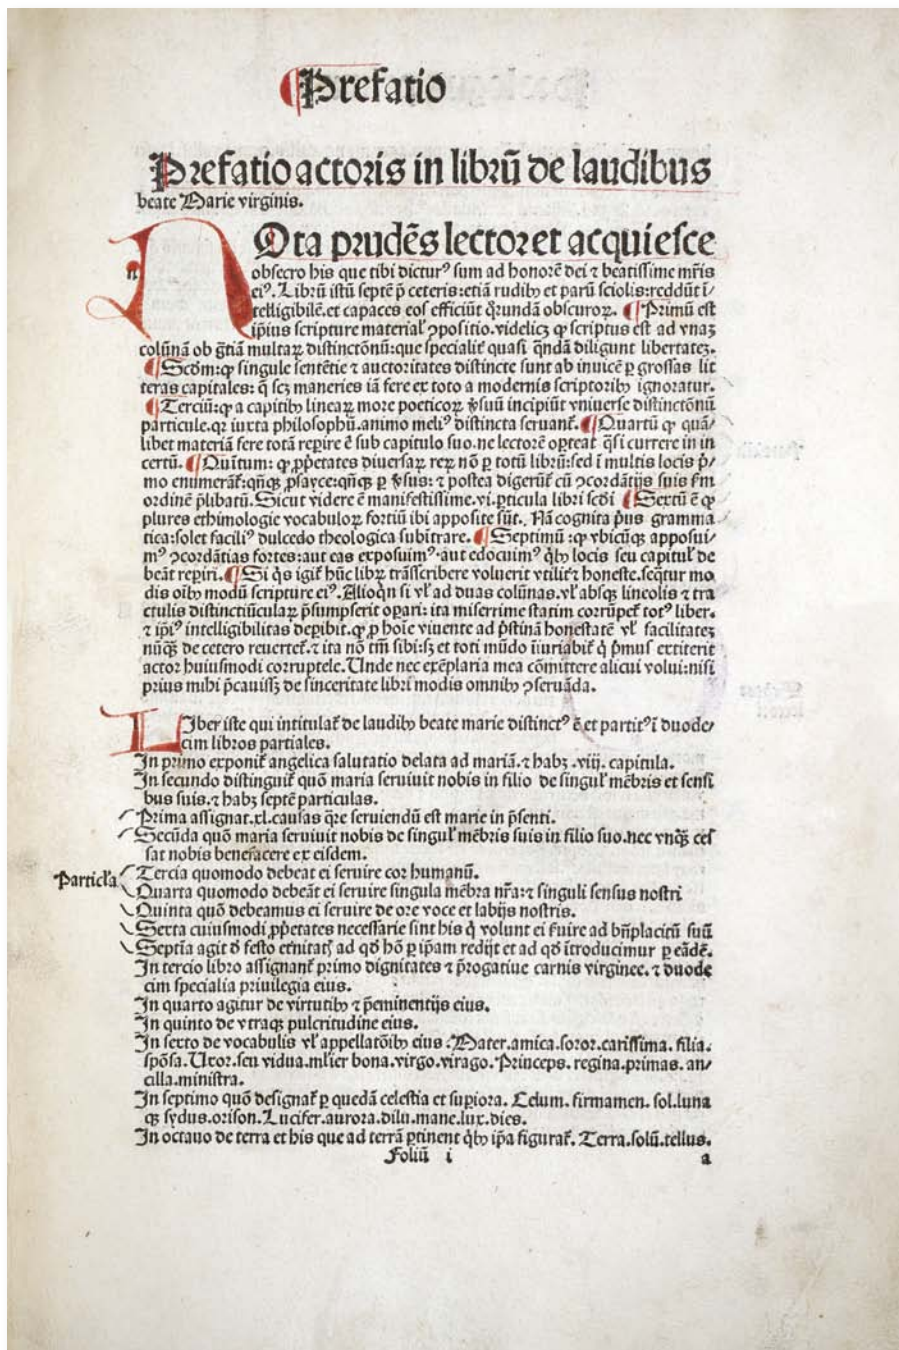 Prefatio
Prefatio actoris in librū de laudibus
beate Marie virginis.
NOta prudēs lector et acquiesce
n
obsecro his que tibi dicturꝰ sum ad honorē dei ⁊ beatissime mr̄is
eiꝰ. Librū istū septē p̄ ceteris: etiā rudibꝫ et parū sciolis: reddūt ī⸗
telligibilē. et capaces eos efficiūt q̄rundā obscuroꝝ. Primū est
ip̄ius scripture material̓ ꝯpositio. videlicꝫ ꝙ scriptus est ad vnaꝫ
colūnā ob gr̄iā multaꝝ distinctōnū: que specialit̓ quasi q̄ndā diligunt libertateꝫ.
Scd̓m: ꝙ singule sentētie ⁊ auctoritates distincte sunt ab inuicē ꝑ grossas lit
teras capitales: q̄ scꝫ maneries iā fere ex toto a modernis scriptoribꝫ ignoratur.
Terciū: ꝙ a capitibꝫ lineaꝝ more poeticoꝝ v̓suū incipiūt vniuerse distinctōnū
particule. ꝙ iuxta philosophū. animo meliꝰ distincta seruant̓. Quartū ꝙ quā⸗
libet materiā fere totā reꝑire ē sub capitulo suo. ne lectorē oꝑteat q̄si currere in in
certū. Quītum: ꝙ ꝓpꝛietates diuersaꝝ reꝝ nō ꝑ totū librū: sed ī multis locis p̄⸗
mo enumerāt̓: qn̄qꝫ ꝓsayce: qn̄qꝫ ꝑ v̓sus: ⁊ postea digerūt̓ cū ꝯcordātijs suis fm
ordinē p̄libatū. Sicut videre ē manifestissime. vi. ꝑticula libri scd̓i Sextū ē ꝙ
plures ethimologie vocabuloꝝ fortiū ibi apposite sūt. Nā cognita p̄us gramma⸗
tica: solet faciliꝰ dulcedo theologica subitrare. Septimū: ꝙ vbicūqꝫ apposui⸗
mꝰ ꝯcordātias fortes: aut eas exposuimꝰ. aut edocuimꝰ q̄bꝫ locis seu capitul̓ de
beāt reꝑiri. Si q̄s igit̓ hūc libꝝ trāsscribere voluerit vtilit̓ ⁊ honeste. seq̄tur mo
dis oībꝫ modū scripture eiꝰ. Alioq̄n si vl̓ ad duas colūnas. vl̓ absqꝫ lineolis ⁊ tra
ctulis distinctiūculaꝝ p̄sumpserit oꝑari: ita miserrime statim corrūpet̓ totꝰ liber.
⁊ ip̄iꝰ intelligibilitas deꝑibit. ꝙ ꝓ hoīe viuente ad p̄stinā honestatē vl̓ facilitateꝫ
nūqꝫ de cetero reuertet̓. ⁊ ita nō tm̄ sibi: sꝫ et toti mūdo īiuriabit̓ q̓ p̄mus extiterit
actor huiusmodi corruptele. Unde nec exēplaria mea cōmittere alicui volui: nisi
prius mihi p̄cauissꝫ de sinceritate libri modis omnibꝫ ꝯseruāda.
LIber iste qui intitulat̓ de laudibꝫ beate marie distinctꝰ ē et partitꝰ ī duode⸗
cim libros partiales.
In primo exponit̓ angelica salutatio delata ad mariā. ⁊ habꝫ .viij. capitula.
In secundo distinguit̓ quō maria seruiuit nobis in filio de singul̓ mēbris et sensi
bus suis. ⁊ habꝫ septē particulas.
Prima assignat. xl. causas q̄re seruiendū est marie in p̄senti.
Secūda quō maria seruiuit nobis de singul̓ mēbris suis in filio suo. nec vnqꝫ ces̓
sat nobis benefacere ex eisdem.
Particl̓a
Tercia quomodo debeat ei seruire cor humanū.
Quarta quomodo debeāt ei seruire singula mēbra nr̄a: ⁊ singuli sensus nostri
Quinta quō debeamus ei seruire de ore voce et labijs nostris.
Sexta cuiusmodi ꝓpꝛietates necessarie sint his q̓ volunt ei s̓uire ad bn̄placitū suū
Septīa agit d̓ festo et̓nitat̓ ad qd̓ hō ꝑ ip̄am redijt et ad qd̓ ītroducimur ꝑ eādē.
In tercio libro assignant̓ primo dignitates ⁊ p̄rogatiue carnis virginee. ⁊ duode
cim specialia priuilegia eius.
In quarto agitur de virtutibꝫ ⁊ p̄eminentijs eius.
In quinto de vtraqꝫ pulcritudine eius.
In sexto de vocabulis vl̓ appellatōibꝫ eius. Mater. amica. soror. carissima. filia.
spōsa. Uxor. seu vidua. ml̓ier bona. virgo. virago. Princeps. regina. primas. an⸗
cilla. ministra.
In septimo quō designat̓ ꝑ quedā celestia et suꝑiora. Celum. firmamen. sol. luna
qꝫ sydus. orison. Lucifer. aurora. dilu. mane. lux. dies.
In octauo de terra et his que ad terrā ꝑtinent q̄bꝫ ip̄a figurat̓. Terra. solū. tellus.
Foliū i a